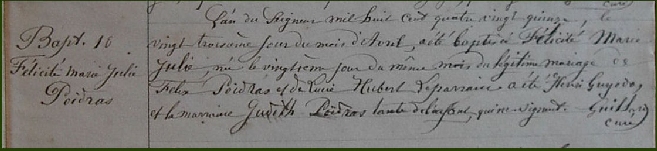 Bapt. 16
Félicité Marie Julie
Poidras
L'an du Seigneur mil huit cent quatre vingt quinze, le
vingt troisième jour du mois d'Avril, a été baptisé Félicité Marie
Julie, née le vingtième jour du même mois du légitime mariage de
Félix Poidras et de Lucie Hubert Le parrain a été Henri
et la marraine Judith Poidras tante de l'enfant, qui ne signent.
curé